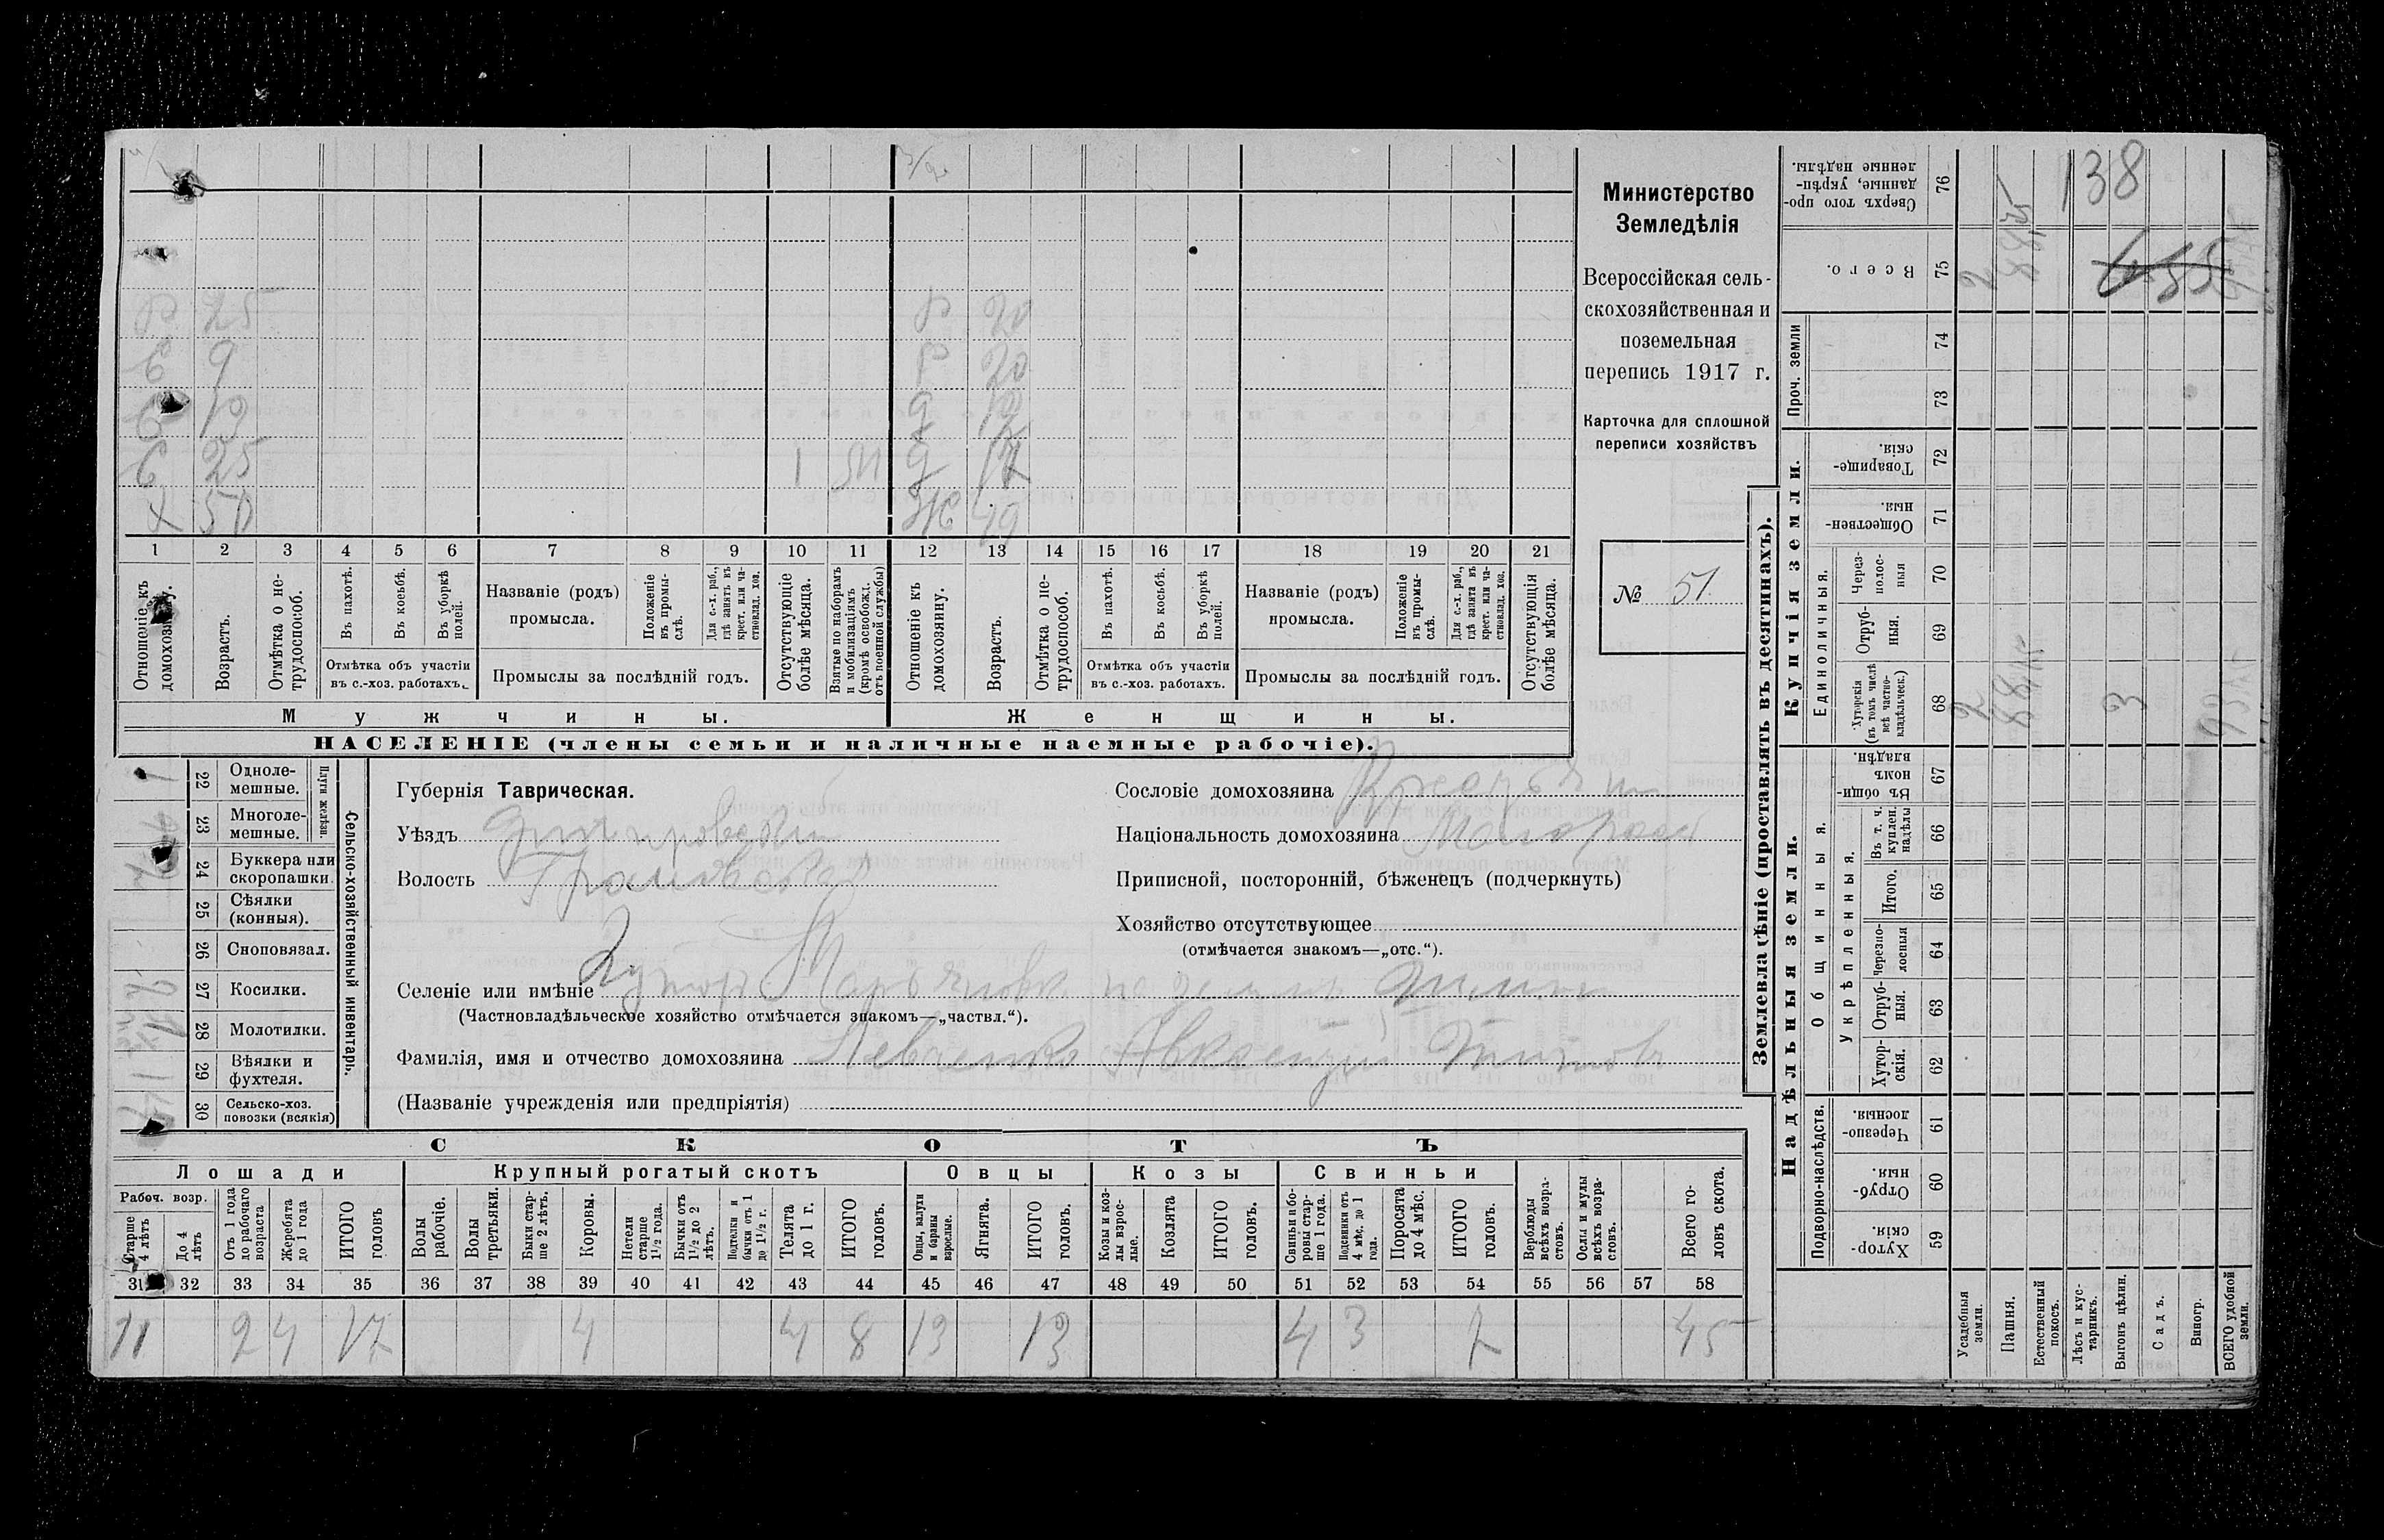 Министерство
Земледѣлія
Всероссійская сель-
скохозяйственная и
поземельная
перепись 1917 г.
Карточка для сплошной
переписи хозяйствъ
№ 51.
Р 25 Р 20
С 9 Р 20
С 13 Д 12
С 25 1 М Д 17
Х 50 Ж 49
1 2 3 4 5 6 7 8 9 10 11 12 13 14 15 16 17 18 19 20 21
Отношеніе къ домохозяину.
Возрастъ.
Отмѣтка о не-трудоспособ.
Въ пахотѣ.
Въ косьбѣ.
Въ уборкѣ полей.
Отмѣтка объ участіи
въ с.-хоз. работахъ.
Названіе (родъ)
промысла.
Положеніе въ промы-слѣ.
Для с.-х. раб., гдѣ занятъ въ крест. или ча-стновлад. хоз.
Промыслы за послѣдній годъ.
Отсутствующіе болѣе мѣсяца.
Взятые по наборамъ и мобилизаціямъ (кромѣ освобожд. отъ военной службы)
Отношеніе къ домохозяину.
Возрастъ.
Отмѣтка о не-трудоспособ.
Въ пахотѣ.
Въ косьбѣ.
Въ уборкѣ полей.
Отмѣтка объ участіи
въ с.-хоз. работахъ.
Названіе (родъ)
промысла.
Положеніе въ промы-слѣ.
Для с.-х. раб., гдѣ занята въ крест. или ча-стновлад. хоз.
Промыслы за послѣдній годъ.
Отсутствующія болѣе мѣсяца.
Мужчины. Женщины.
НАСЕЛЕНІЕ (члены семьи и наличные наемные рабочіе).
Сельско-хозяйственный инвентарь.
Плуги желѣзн.
22 Одноле-мешные. 1
23 Многоле-мешные.
24 Буккера или скоропашки.
25 Сѣялки (конныя).
26 Сноповязал.
27 Косилки.
28 Молотилки.
29 Вѣялки и фухтеля. 1
30 Сельско-хоз. повозки (всякія)
Губернія Таврическая.
Уѣздъ Днѣпровскій
Волость
Селеніе или имѣніе Хуторъ
(Частновладѣльческое хозяйство отмѣчается знакомъ—„частвл.“).
Фамилія, имя и отчество домохозяина Левченко Авксентій Титовъ
(Названіе учрежденія или предпріятія)
Сословіе домохозяина Крестьян
Національность домохозяина Малоросс
Приписной, посторонній, бѣженецъ (подчеркнуть)
Хозяйство отсутствующее
(отмѣчается знакомъ—„отс.“).
СКОТЪ
Лошади Крупный рогатый скотъ Овцы Козы Свиньи
Рабоч. возр.
Старше 4 лѣтъ
До 4 лѣтъ
Отъ 1 года до рабочаго возраста
Жеребята до 1 года
ИТОГО головъ
Волы рабочіе.
Волы третьяки.
Быки стар-ше 2 лѣтъ.
Коровы.
Нетели старше 1½ года.
Бычки отъ 1½ до 2 лѣтъ.
Подтелки и бычки отъ 1 до 1½ г.
Телята до 1 г.
ИТОГО головъ.
Овцы, валухи и бараны взрослые.
Ягнята.
ИТОГО головъ.
Козы и коз-лы взрос-лые.
Козлята
ИТОГО головъ.
Свиньи и бо-ровы стар-ше 1 года.
Подсвинки отъ 4 мѣс. до 1 года.
Поросята до 4 мѣс.
ИТОГО головъ
Верблюды всѣхъ возра-стовъ.
Ослы и мулы всѣхъ возра-стовъ.
Всего го-ловъ скота.
31 32 33 34 35 36 37 38 39 40 41 42 43 44 45 46 47 48 49 50 51 52 53 54 55 56 57 58
11 2 4 17 4 4 8 13 13 4 3 7 45
Землевладѣніе (проставлять въ десятинахъ).
Сверхъ того про-данные, укрѣп-ленные надѣлы. 76
138
Всего. 75
2
Проч. земли
74
73
Купчія земли.
Товарище-скія. 72
Обществен-ныя. 71
Единоличныя.
Через-полос-ныя 70
Отруб-ныя. 69
Хуторскія (въ томъ числѣ всѣ частно-владѣльческ.) 68
2 3
Надѣльныя земли.
Общинныя.
Въ общин-номъ владѣн. 67
Укрѣпленныя.
Въ т. ч. куплен. надѣлы 66
Итого. 65
Черезпо-лосныя 64
Отруб-ныя. 63
Хутор-скія. 62
Подворно-наслѣдств.
Черезпо-лосныя. 61
Отруб-ныя. 60
Хутор-скія. 59
Усадебныя земли.
Пашня.
Естественный покосъ.
Лѣсъ и кус-тарникъ.
Выгонъ цѣлин.
Садъ.
Виногр.
ВСЕГО удобной земли.